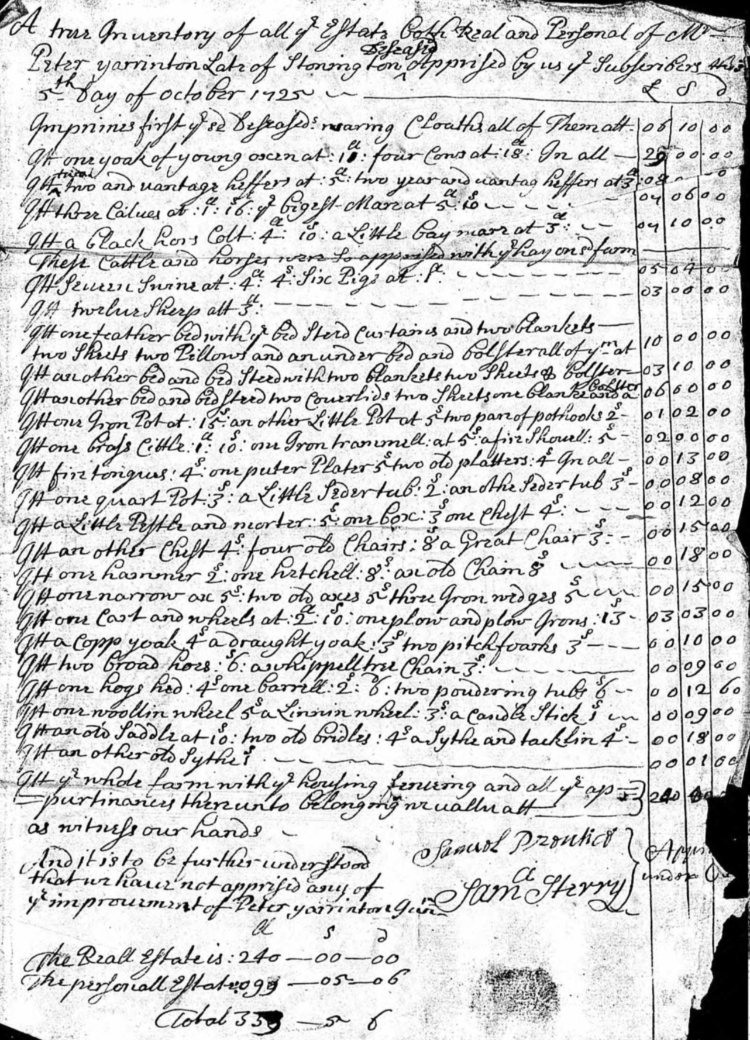 A true Inventory of all ye Estate both Real and Personal of Mr
Peter yarrinton Late of Stonington Deseased Apprised by us ye Subscribers
5th Day of October 1725 £ S D
Imprimes first ye sd Deseased: waring Cloaths all of Them att 06 10 00
Itt one yoak of young oxen at: 11: four Cows at: 18: In all 29 00 00
Itt two and vantage heffers at: 5: two year and vantag heffers at 3: 08
Itt three Calves at: 1: 16: ye bigest Mare at 5: 10 04 06 00
Itt a black hors Colt: 4: 10: a Little bay mare at 3: 04 10 00
These Cattle and horses were so apprised with ye hay on sd farm
Itt Seven Swine at: 4: 4: Six Pigs at: 1: 05 04 00
It twelve Sheep att 3: 03 00 00
Itt one feather bed with ye bed Sted Curtains and two blankets
two Sheets two Pillows and an under bed and bolster all of ym at 10 00 00
Itt an other bed and bed Steed with two blankets two Sheets & bolster 03 10 00
Itt another bed and bedsteed two Coverlids two Sheets one blanket and a bolster 06 00 00
Itt one Iron Pot at: 15: an other Little Pot at 5: two par of pothooks 2 01 02 00
Itt one brass Cittle: 1: 10: one Iron trammell: at 5: a fire Showell: 5 02 00 00
It fire tongues: 4: one puter Plater 5 two old platters: 4 In all 00 13 00
Itt one quart Pot: 3: a Little Seder tub: 2: an othe Seder tub 3 00 08 00
Itt a Little Pestle and morter: 5: one box: 3 one Chest 4: 00 12 00
Itt an other Chest 4: four old Chairs: 8 a Great Chair 3: 00 15 00
Itt one hammer 2: one hetchell: 8: an old Chain 8 00 18 00
It one narrow ax 5: two old axes 5 three Iron wedges 5 00 15 00
Itt one Cart and wheels at: 2: 10: one plow and plow Irons: 13 03 03 00
Itt a Copp yoak 4 a draught yoak: 3 two pitchfoarks 3 00 10 00
Itt two broad hoes: 6: a whippell tree Chain 3: 00 09 00
Itt one hogs hed: 4: one barrell: 2: 6: two powdering tubs 6 00 12 60
Itt one woollin wheel 5 a Linnin wheel: 3: a Candle Stick 1 00 09 00
Itt an old Saddle at: 10: two old bridles: 4 a Sythe and tacklin 4 00 18 00
It an other old Sythe 1 00 01 00
Itt ye whole farm with ye housing fencing and all ye ap=
=purtinances there unto belonging we vallu att 240
as witness our hands
Samuel Prentice
And it is to be further understood
that we have not apprised any of Sam Sterry
ye improvement of Peter yarrinton
under
The Reall Estate is: 240 — 00 — 00
The personall Estate: 099 — 05 — 06
Total 339 — 5 6